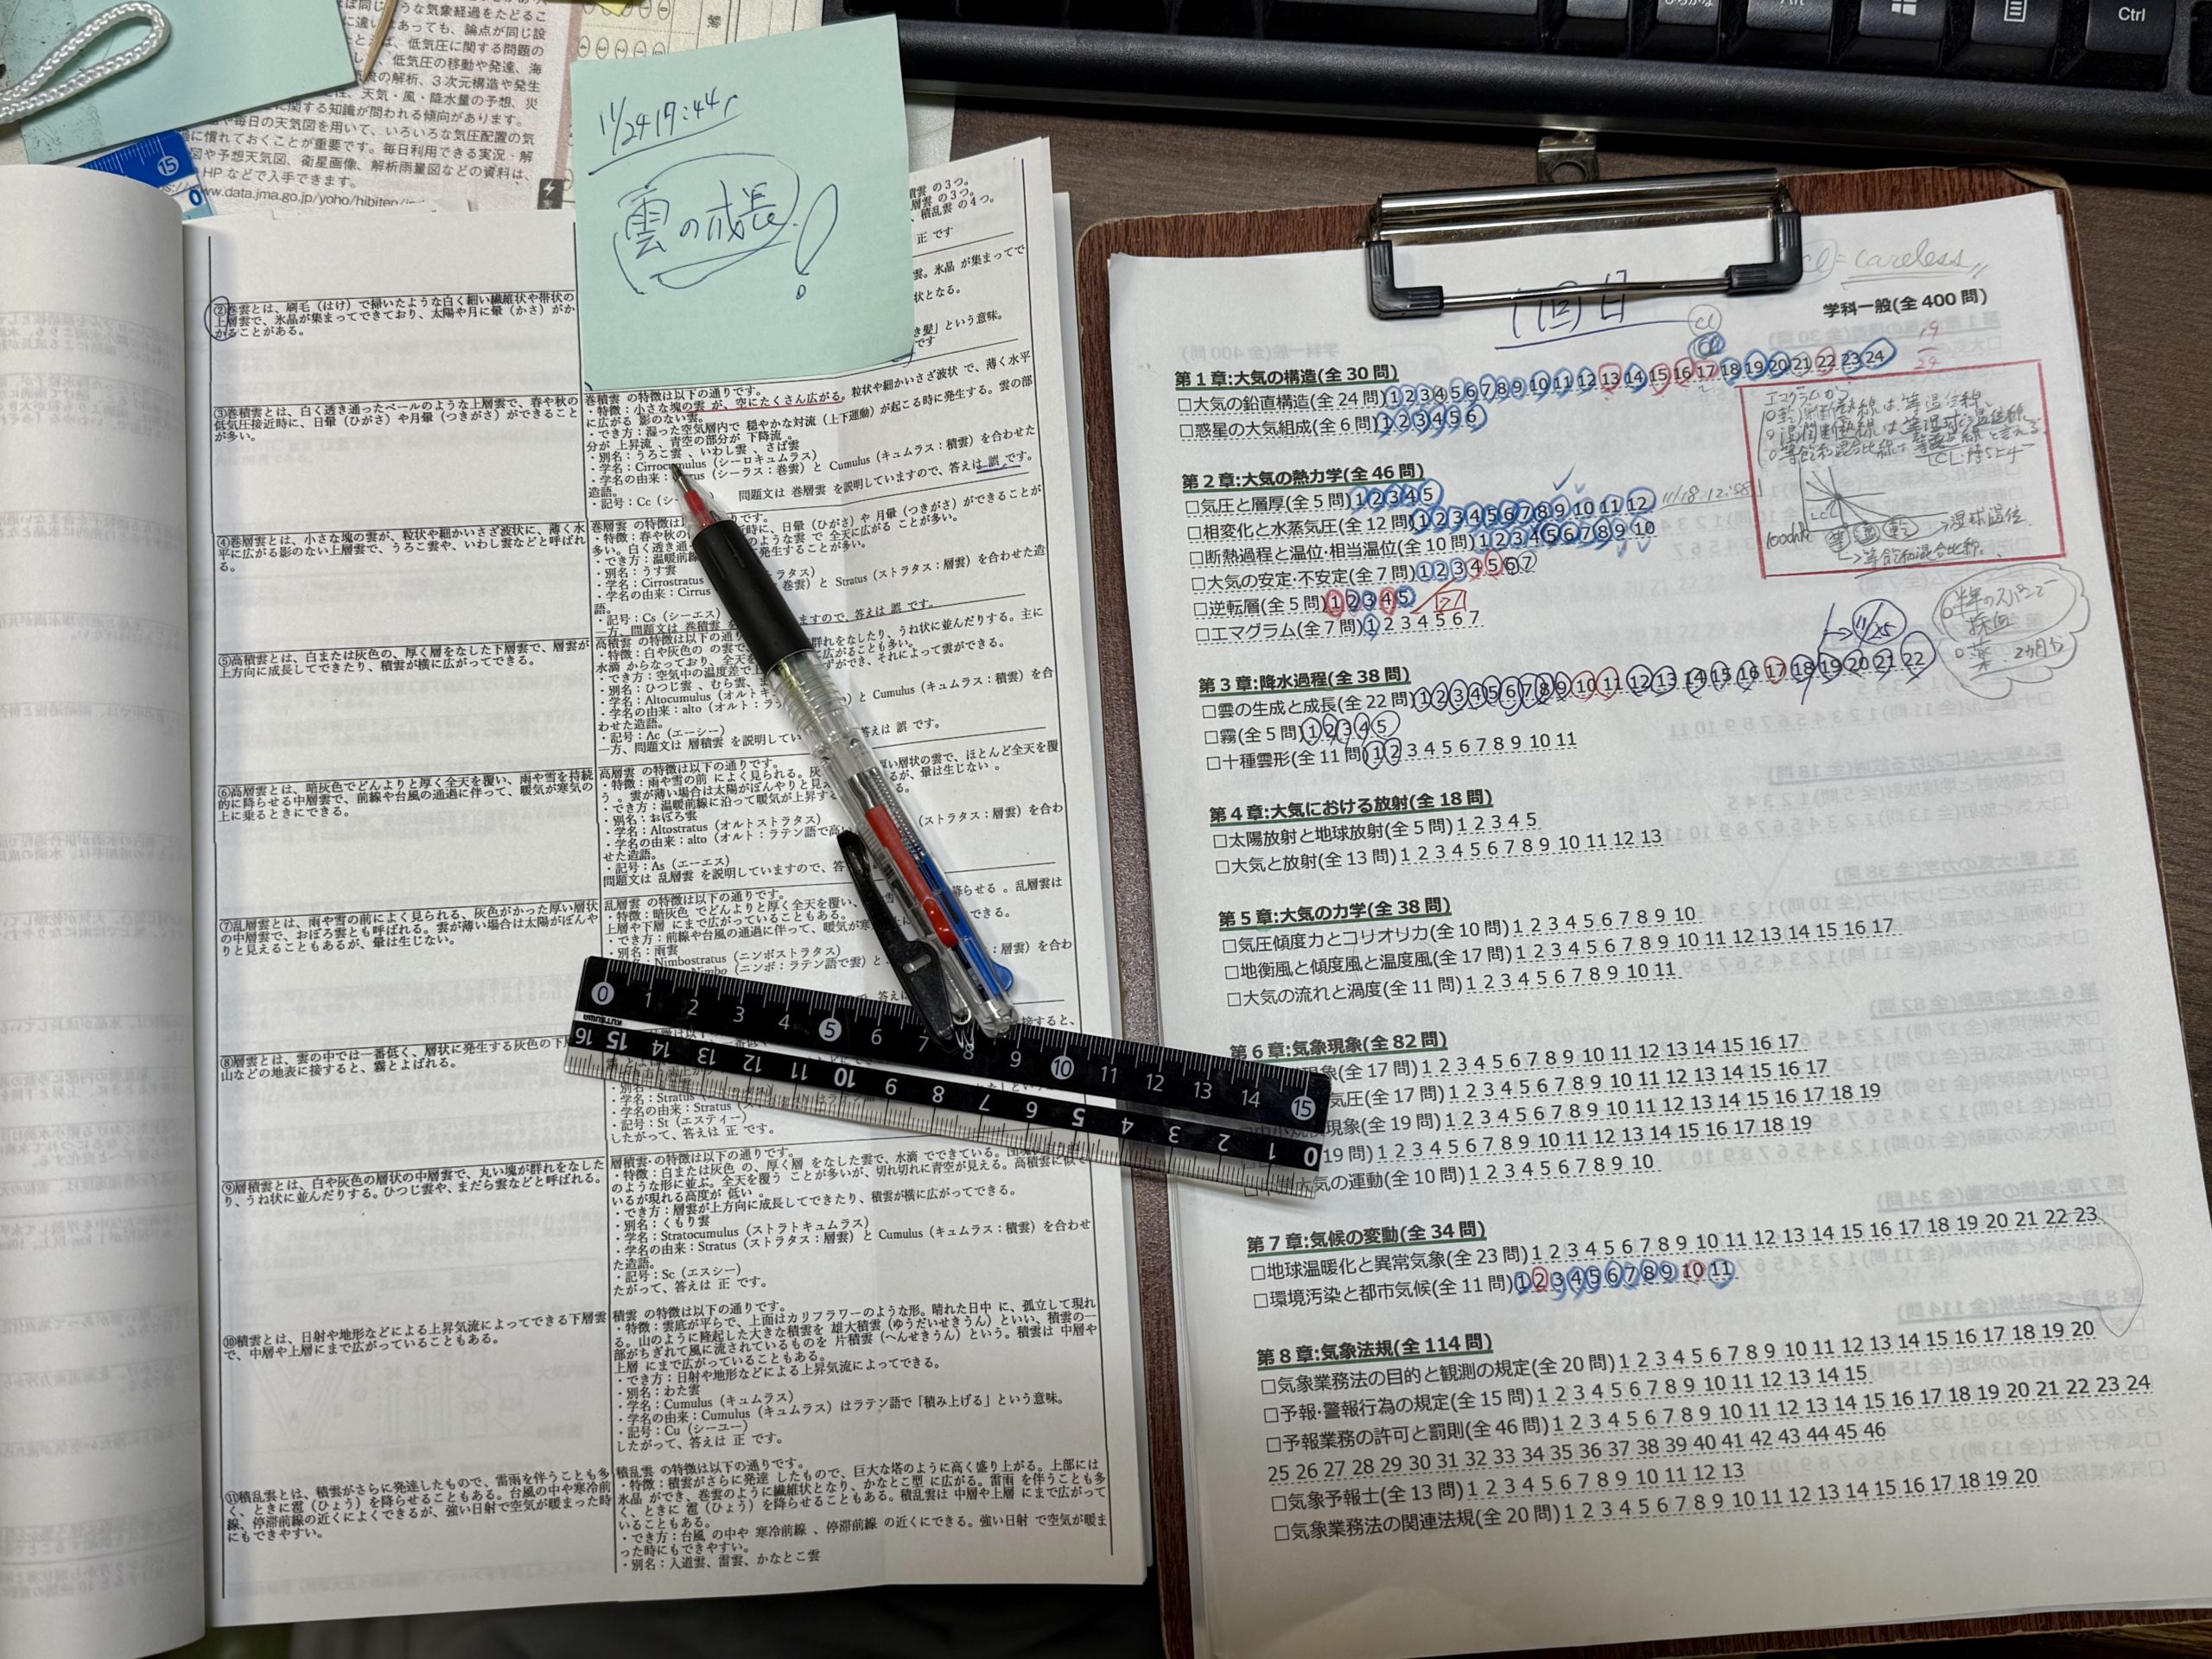 ぼ同じような気象経過をたどるこ
違いはあっても、論点が同じ設
低気圧に関する問題の
低気圧の移動や発達、海
の解析、3次元構造や発生
天気・風・降水量の予想、災
に関する知識が問われる傾向があります。
毎日の天気図を用いて、いろいろな気圧配置の気
に慣れておくことが重要です。毎日利用できる実況・解
図や予想天気図、衛星画像、解析雨量図などの資料は、
HPなどで入手できます。
www.data.jma.go.jp/yoho/hibiten/
15
0
11/24 17:44
雲の成長!
Alt
Ctrl
②巻雲とは、刷毛（はけ）で掃いたような白く細い繊維状や帯状の
上層雲で、氷晶が集まってできており、太陽や月に暈（かさ）がか
かることがある。
の3つ。
の3つ。
、積乱雲 の4つ。
正 です
雲。氷晶 が集まってで
状となる。
き髪」という意味。
です
③巻積雲とは、白く透き通ったベールのような上層雲で、春や秋の
低気圧接近時に、日暈（ひがさ）や月暈（つきがさ）ができること
が多い。
巻積雲 の特徴は以下の通りです。
・特徴：小さな塊の雲 が、空にたくさん広がる。粒状や細かいさざ波状 で、薄く水平
に広がる 影のない雲。
・でき方：湿った空気層内で 穏やかな対流（上下運動）が起こる時に発生する。雲の部
分が 上昇流 、青空の部分が 下降流 。
・別名：うろこ雲 、いわし雲 、さば雲
・学名：Cirrocumulus（シーロキュムラス）
・学名の由来：Cirrus（シーラス：巻雲）と Cumulus（キュムラス：積雲）を合わせた
造語。
・記号：Cc（シー
問題文は 巻層雲 を説明していますので、答えは 誤 です。
④巻層雲とは、小さな塊の雲が、粒状や細かいさざ波状に、薄く水
平に広がる影のない上層雲で、うろこ雲や、いわし雲などと呼ばれ
る。
巻層雲 の特徴は以下の通りです。
・特徴：春や秋の 近時に、日暈（ひがさ）や 月暈（つきがさ）ができることが
多い。白く透き通 のような雲 で 全天に広がる ことが多い。
・でき方：温暖前線 発生することが多い。
・別名：うす雲
・学名：Cirrostratus トラタス）
・学名の由来：Cirrus 巻雲）と Stratus（ストラタス：層雲）を合わせた造
語。
・記号：Cs（シーエス）
一方、問題文は 巻積雲 を ますので、答えは 誤 です。
⑤高積雲とは、白または灰色の、厚く層をなした下層雲で、層雲が
上方向に成長してできたり、積雲が横に広がってできる。
高積雲 の特徴は以下の通り
・特徴：白や灰色の の雲で 群れをなしたり、うね状に並んだりする。主に
水滴 からなっており、全天を に広がることも多い。
・でき方：空気中の温度差で上 ずができ、それによって雲ができる。
・別名：ひつじ雲 、むら雲、ま
・学名：Altocumulus（オルトキ
・学名の由来：alto（オルト：ラ と Cumulus（キュムラス：積雲）を合
わせた造語。
・記号：Ac（エーシー）
一方、問題文は 層積雲 を説明してい 答えは 誤 です。
⑥高層雲とは、暗灰色でどんよりと厚く全天を覆い、雨や雪を持続
的に降らせる中層雲で、前線や台風の通過に伴って、暖気が寒気の
上に乗るときにできる。
高層雲 の特徴は以下の通りです。
・特徴：雨や雪の前 によく見られる。灰 厚い層状の雲で、ほとんど全天を覆
う 。雲が薄い場合は太陽がぼんやりと見え るが、暈は生じない 。
・でき方：温暖前線に沿って暖気が上昇す る。
・別名：おぼろ雲
・学名：Altostratus（オルトストラタス）
・学名の由来：alto（オルト：ラテン語で高 （ストラタス：層雲）を合わ
せた造語。
・記号：As（エーエス）
問題文は 乱層雲 を説明していますので、答
⑦乱層雲とは、雨や雪の前によく見られる、灰色がかった厚い層状
の中層雲で、おぼろ雲とも呼ばれる。雲が薄い場合は太陽がぼんや
りと見えることもあるが、暈は生じない。
乱層雲 の特徴は以下の通りです。
・特徴：暗灰色 でどんよりと厚く全天を覆い、 降らせる 。乱層雲は
上層や下層 にまで広がっていることもある。
・でき方：前線や台風の通過に伴って、暖気が寒 できる。
・別名：雨雲
Nimbostratus（ニンボストラタス）
Nimbo（ニンボ：ラテン語で雲）と ：層雲）を合わ
⑧層雲とは、雲の中では一番低く、層状に発生する灰色の下層
山などの地表に接すると、霧とよばれる。
接すると、
・別名：
・学名：Stratus
・学名の由来：Stratus（ス
・記号：St（エスティー）
したがって、答えは 正 です。
⑨層積雲とは、白や灰色の層状の中層雲で、丸い塊が群れをなした
り、うね状に並んだりする。ひつじ雲や、まだら雲などと呼ばれる。
層積雲 の特徴は以下の通りです。
・特徴：白または灰色 の、厚く層 をなした雲で、水滴 でできている。
のような形に並ぶ。全天を覆う ことが多いが、切れ切れに青空が見える。高積雲に似て
いるが現れる高度が 低い 。
・でき方：層雲が上方向に成長してできたり、積雲が横に広がってできる。
・別名：くもり雲
・学名：Stratocumulus（ストラトキュムラス）
・学名の由来：Stratus（ストラタス：層雲）と Cumulus（キュムラス：積雲）を合わせ
た造語。
・記号：Sc（エスシー）
たがって、答えは 正 です。
⑩積雲とは、日射や地形などによる上昇気流によってできる下層雲
で、中層や上層にまで広がっていることもある。
積雲 の特徴は以下の通りです。
・特徴：雲底が平らで、上面はカリフラワーのような形。晴れた日中 に、孤立して現れ
る。山のように隆起した大きな積雲を 雄大積雲（ゆうだいせきうん）といい、積雲の一
部がちぎれて風に流されているものを 片積雲（へんせきうん）という。積雲は 中層や
上層 にまで広がっていることもある。
・でき方：日射や地形などによる上昇気流によってできる。
・別名：わた雲
・学名：Cumulus（キュムラス）
・学名の由来：Cumulus（キュムラス）はラテン語で「積み上げる」という意味。
・記号：Cu（シーユー）
したがって、答えは 正 です。
⑪積乱雲とは、積雲がさらに発達したもので、雷雨を伴うことも多
く、ときに雹（ひょう）を降らせることもある。台風の中や寒冷前
線、停滞前線の近くによくできるが、強い日射で空気が暖まった時
にもできやすい。
積乱雲 の特徴は以下の通りです。
・特徴：積雲がさらに発達 したもので、巨大な塔のように高く盛り上がる。上部には
氷晶 ができ、巻雲のように繊維状となり、かなとこ型 に広がる。雷雨 を伴うことも多
く、ときに 雹（ひょう）を降らせることもある。積乱雲は 中層や上層 にまで広がって
いることもある。
・でき方：台風 の中や 寒冷前線 、停滞前線 の近くにできる。強い日射 で空気が暖ま
った時にもできやすい。
・別名：入道雲、雷雲、かなとこ雲
0 1 2 3 4 5 6 7 8 9 10 11 12 13 14 15
KUTSUWA
16 15 14 13 12 11 10 9 8 7 6 5 4 3 2 1 0
1回目
cl = careless
学科一般(全 400 問)
19
24
第 1 章:大気の構造(全 30 問)
□大気の鉛直構造(全 24 問) 1 2 3 4 5 6 7 8 9 10 11 12 13 14 15 16 17 18 19 20 21 22 23 24
□惑星の大気組成(全 6 問) 1 2 3 4 5 6
エマグラムの
乾燥断熱線は等温位線、
湿潤断熱線は等湿球温位線
1000hPa
湿球温位
等飽和混合比線
第 2 章:大気の熱力学(全 46 問)
□気圧と層厚(全 5 問) 1 2 3 4 5
□相変化と水蒸気圧(全 12 問) 1 2 3 4 5 6 7 8 9 10 11 12
11/18 12:58
□断熱過程と温位・相当温位(全 10 問) 1 2 3 4 5 6 7 8 9 10
□大気の安定・不安定(全 7 問) 1 2 3 4 5 6 7
□逆転層(全 5 問) 1 2 3 4 5
□エマグラム(全 7 問) 1 2 3 4 5 6 7
11/25
半年のスパンで
採血
薬 2ヵ月分
第 3 章:降水過程(全 38 問)
□雲の生成と成長(全 22 問) 1 2 3 4 5 6 7 8 9 10 11 12 13 14 15 16 17 18 19 20 21 22
□霧(全 5 問) 1 2 3 4 5
□十種雲形(全 11 問) 1 2 3 4 5 6 7 8 9 10 11
第 4 章:大気における放射(全 18 問)
□太陽放射と地球放射(全 5 問) 1 2 3 4 5
□大気と放射(全 13 問) 1 2 3 4 5 6 7 8 9 10 11 12 13
第 5 章:大気の力学(全 38 問)
□気圧傾度力とコリオリカ(全 10 問) 1 2 3 4 5 6 7 8 9 10
□地衡風と傾度風と温度風(全 17 問) 1 2 3 4 5 6 7 8 9 10 11 12 13 14 15 16 17
□大気の流れと渦度(全 11 問) 1 2 3 4 5 6 7 8 9 10 11
第 6 章:気象現象(全 82 問)
現象(全 17 問) 1 2 3 4 5 6 7 8 9 10 11 12 13 14 15 16 17
気圧(全 17 問) 1 2 3 4 5 6 7 8 9 10 11 12 13 14 15 16 17
□中小規模現象(全 19 問) 1 2 3 4 5 6 7 8 9 10 11 12 13 14 15 16 17 18 19
19 問) 1 2 3 4 5 6 7 8 9 10 11 12 13 14 15 16 17 18 19
大気の運動(全 10 問) 1 2 3 4 5 6 7 8 9 10
第 7 章:気候の変動(全 34 問)
□地球温暖化と異常気象(全 23 問) 1 2 3 4 5 6 7 8 9 10 11 12 13 14 15 16 17 18 19 20 21 22 23
□環境汚染と都市気候(全 11 問) 1 2 3 4 5 6 7 8 9 10 11
第 8 章:気象法規(全 114 問)
□気象業務法の目的と観測の規定(全 20 問) 1 2 3 4 5 6 7 8 9 10 11 12 13 14 15 16 17 18 19 20
□予報・警報行為の規定(全 15 問) 1 2 3 4 5 6 7 8 9 10 11 12 13 14 15
□予報業務の許可と罰則(全 46 問) 1 2 3 4 5 6 7 8 9 10 11 12 13 14 15 16 17 18 19 20 21 22 23 24
25 26 27 28 29 30 31 32 33 34 35 36 37 38 39 40 41 42 43 44 45 46
□気象予報士(全 13 問) 1 2 3 4 5 6 7 8 9 10 11 12 13
□気象業務法の関連法規(全 20 問) 1 2 3 4 5 6 7 8 9 10 11 12 13 14 15 16 17 18 19 20